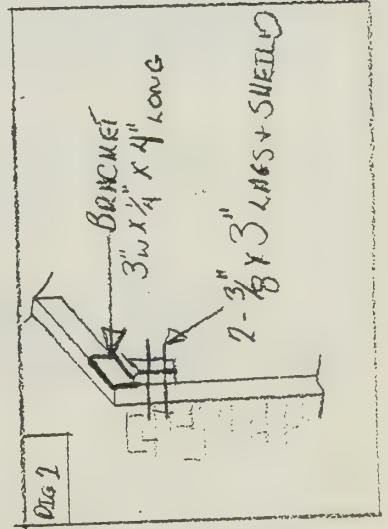 DIG 1
BRACKET
3"W X 1/4" X 4" LONG
2 - 3/8" X 3" LAGS + SHEILD